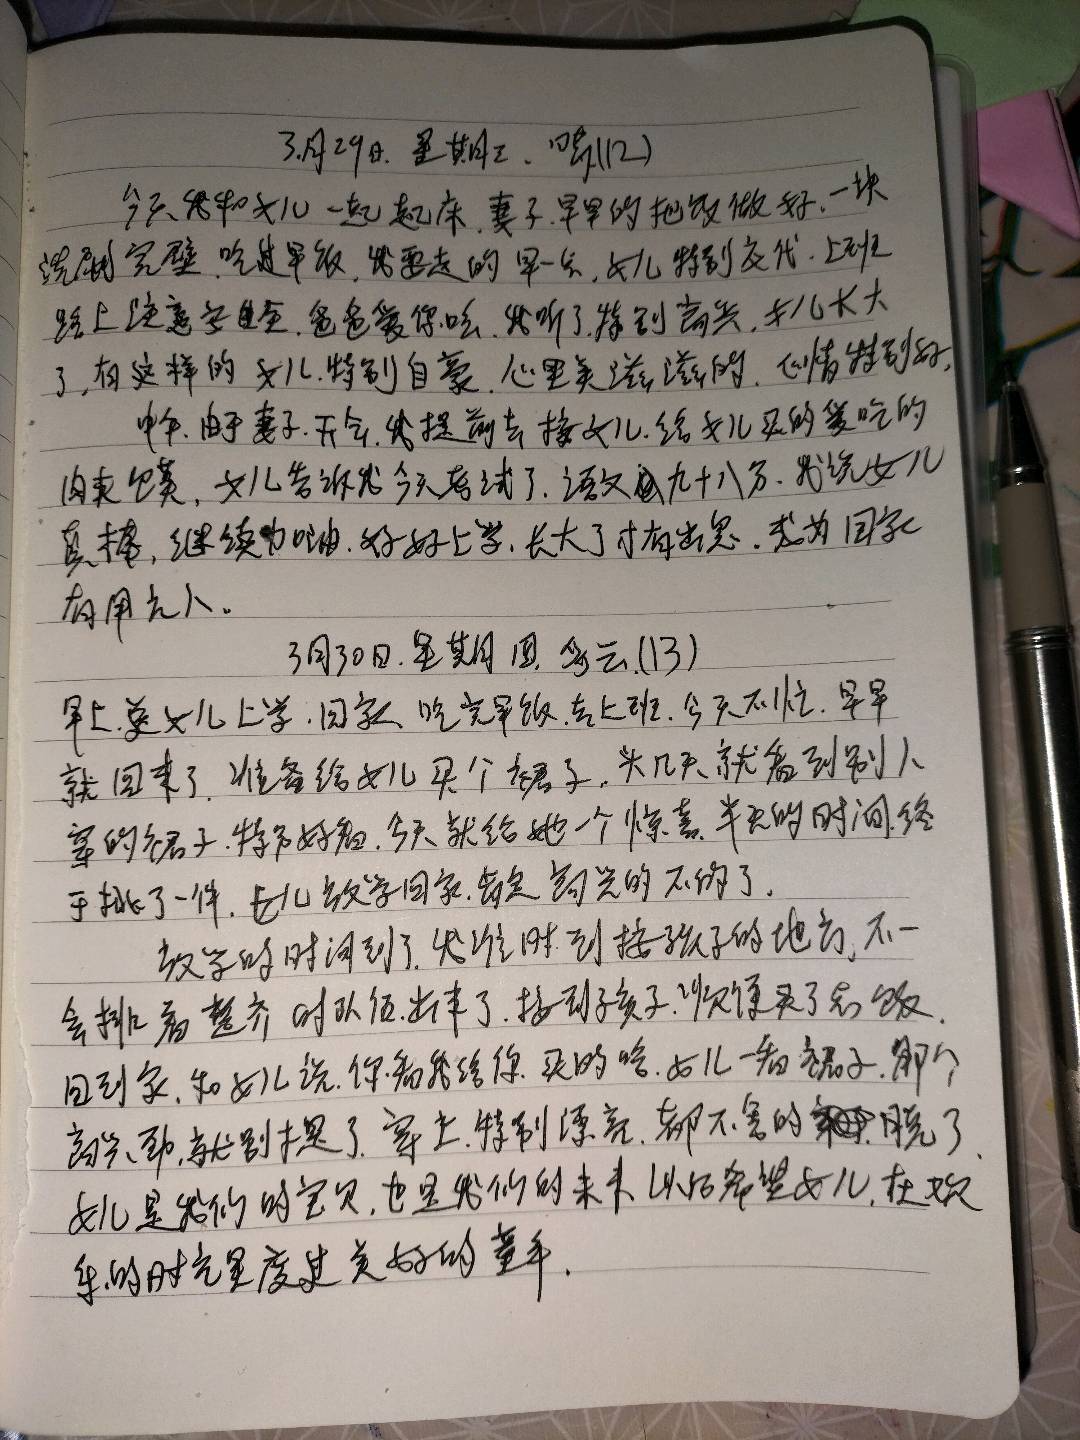 3月29日.星期三、晴(12)
今天我和女儿一起起床,妻子早早的把饭做好,一块
洗刷完壁,吃过早饭,我要走的早一点,女儿特别交代,上班
路上注意安全,爸爸爱你哈,我听了特别高兴,女儿长大
了,有这样的女儿.特别自豪,心里美滋滋的,心情特别好,
中午.由于妻子.开会.我提前去接女儿.给女儿买的爱吃的
肉夹馍,女儿告诉我今天考试了.语文九十八分.我说女儿
真棒,继续加油.好好上学,长大了才有出息,成为国家
有用之人。
3月30日.星期四.多云.(13)
早上.送女儿上学.回家、吃完早饭.去上班.今天不忙.早早
就回来了.准备给女儿买个裙子,头几天就看到别人
穿的裙子.特别好看.今天就给她一个惊喜.半天的时间.终
于挑了一件.女儿放学回家.肯定高兴的不得了.
放学的时间到了.我准时到接孩子的地方,不一
会排着整齐的队伍.出来了.接到了孩子.顺便买了点饭.
回到家,和女儿说.你看我给你.买的啥.女儿一看裙子.那个
高兴劲,就别提了.穿上.特别漂亮.都不舍的脱了.
女儿是我们的宝贝,也是我们的未来.以后希望女儿,在欢
乐的时光里度过美好的童年.